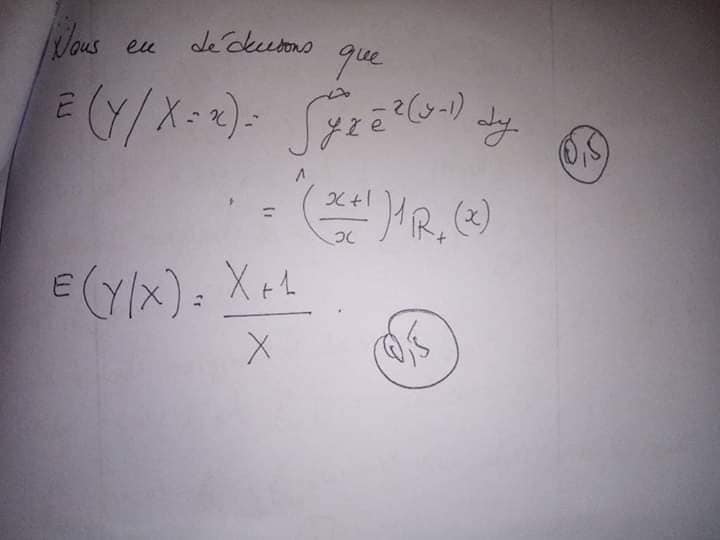 Nous en déduisons que
E(Y/X=x) = ∫₁^∞ y x e^{-x(y-1)} dy 0,5
= (x+1/x) 1_{ℝ₊}(x)
E(Y/X) = X+1/X . 0,5